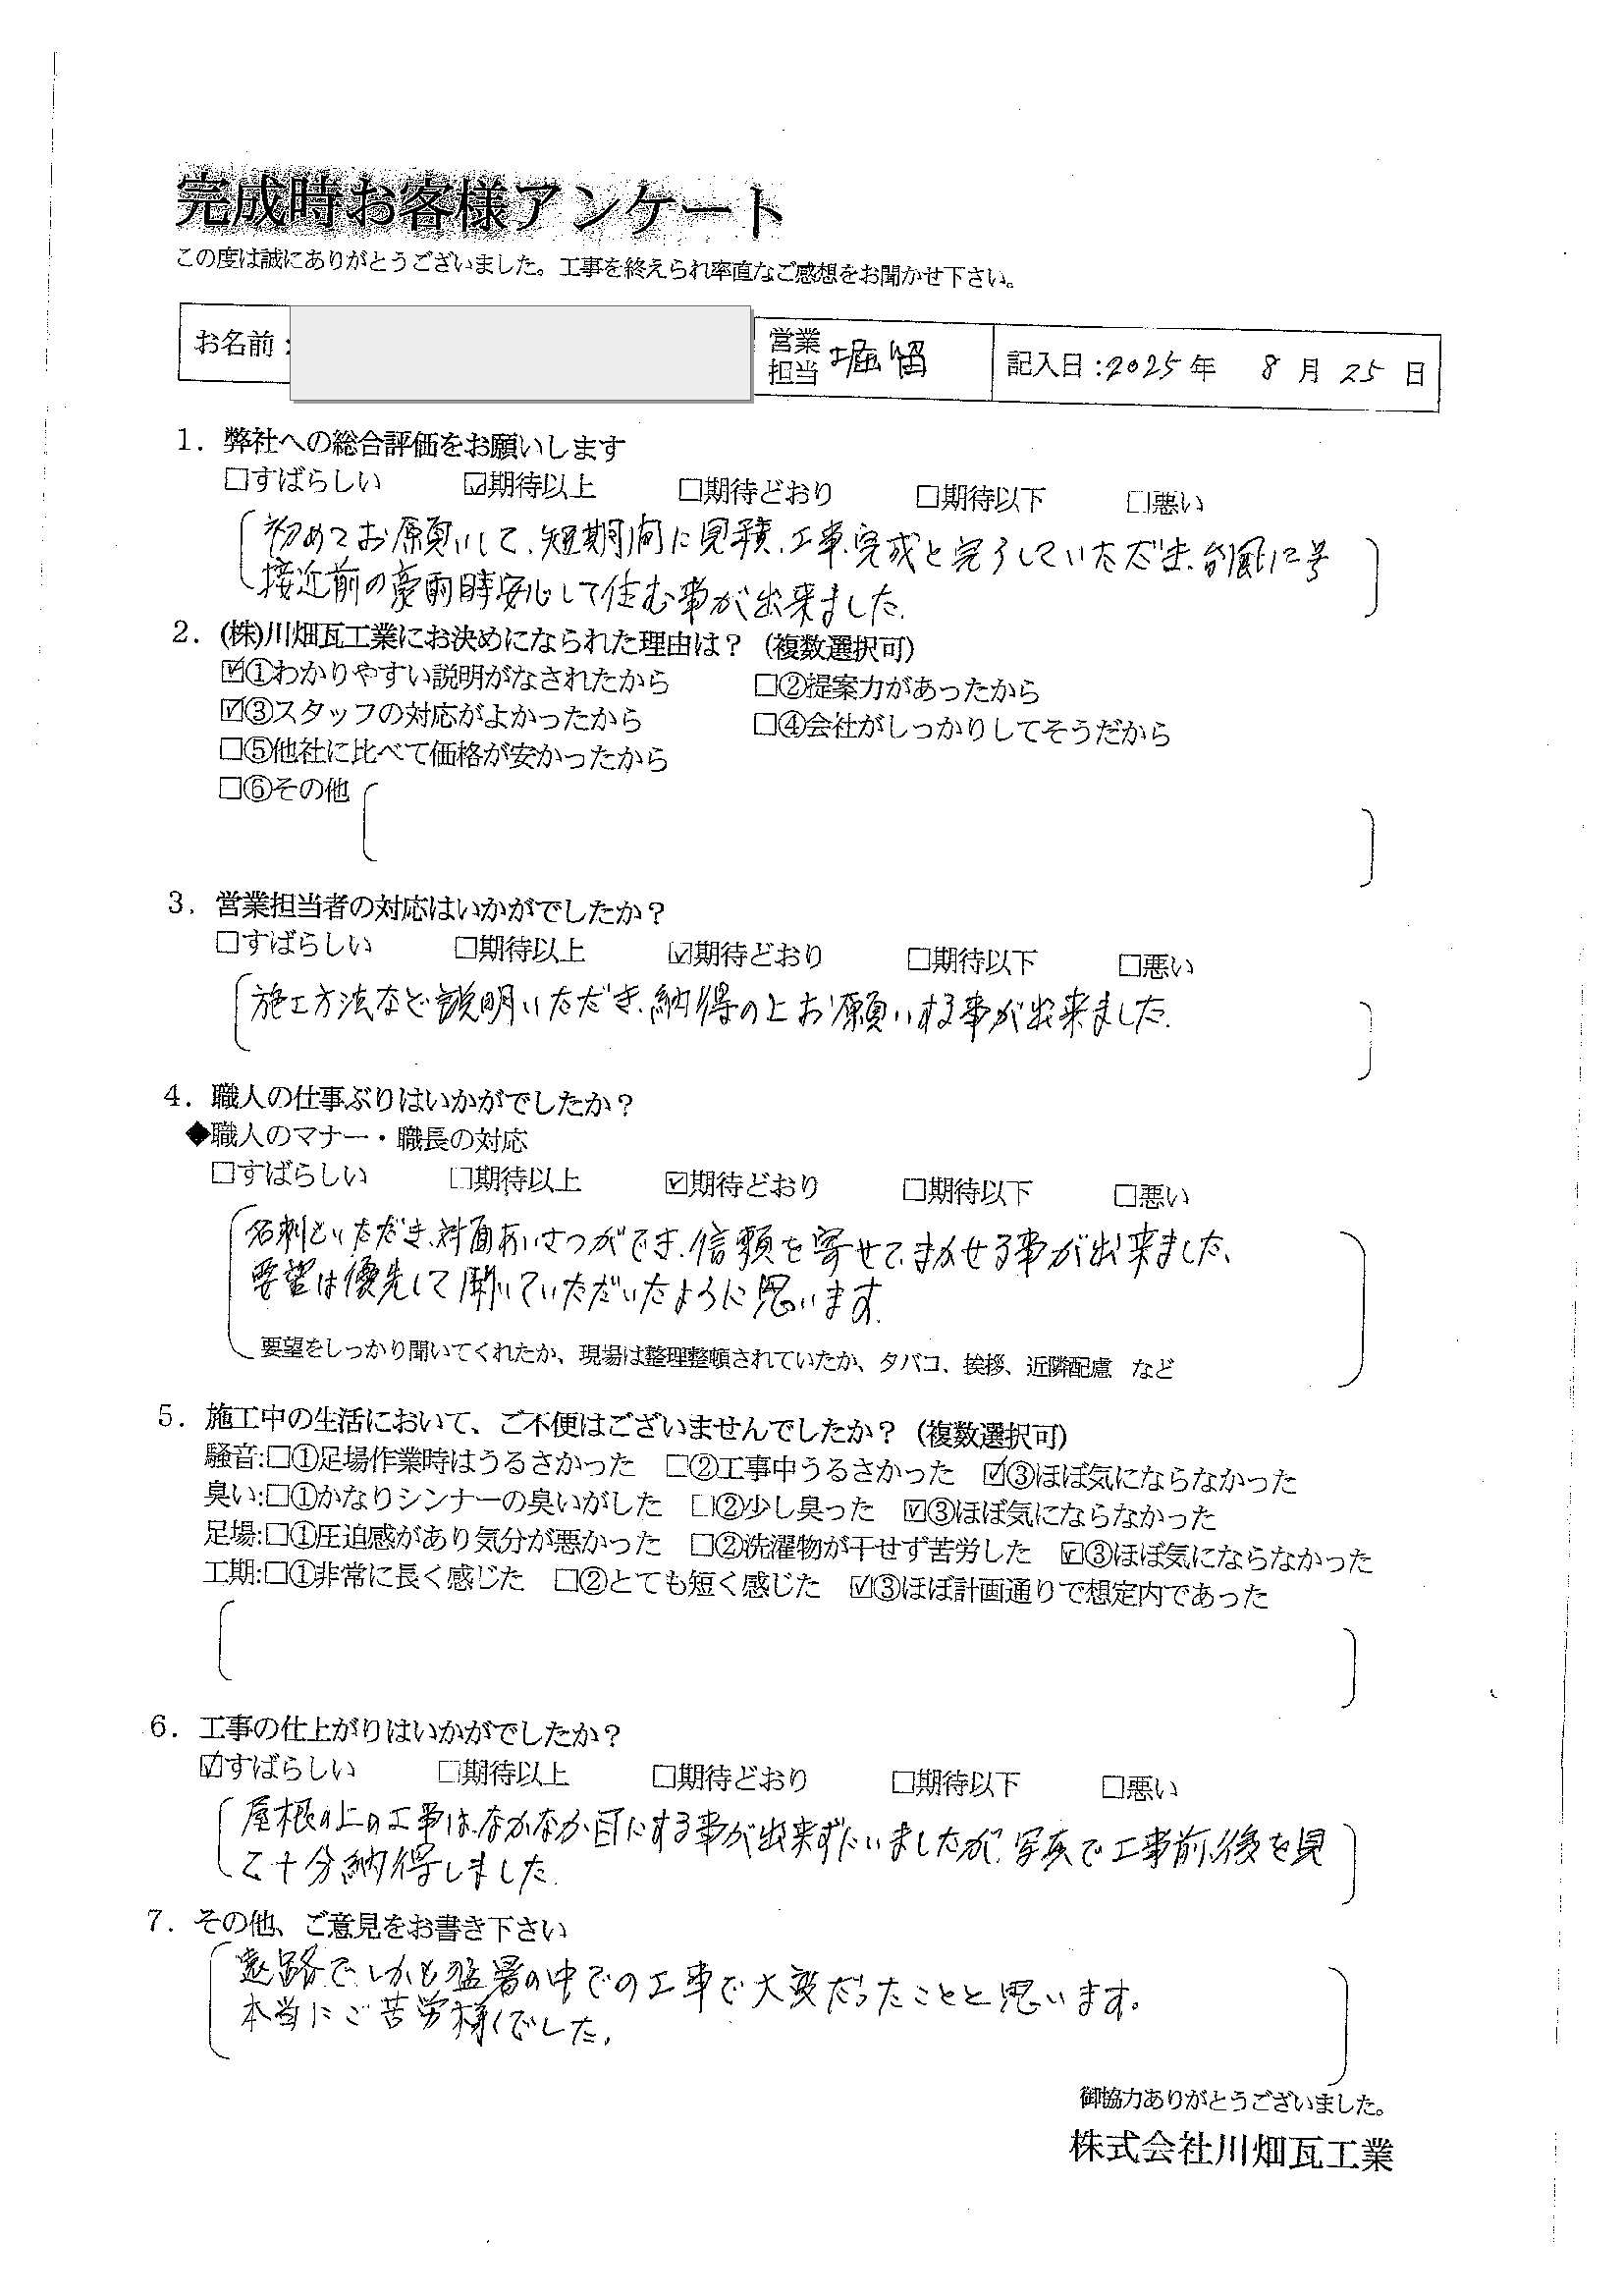 完成時お客様アンケート
この度は誠にありがとうございました。工事を終えられ率直なご感想をお聞かせ下さい。
お名前: 営業担当 堀留 記入日:2025年 8月25日
1. 弊社への総合評価をお願いします
□すばらしい ☑期待以上 □期待どおり □期待以下 □悪い
初めてお願いして、短期間に見積、工事、完成と完了していただき、台風12号
接近前の豪雨時安心して住む事が出来ました。
2. (株)川畑瓦工業にお決めになられた理由は？（複数選択可）
☑①わかりやすい説明がなされたから □②提案力があったから
☑③スタッフの対応がよかったから □④会社がしっかりしてそうだから
□⑤他社に比べて価格が安かったから
□⑥その他
3. 営業担当者の対応はいかがでしたか？
□すばらしい □期待以上 ☑期待どおり □期待以下 □悪い
施工方法など説明いただき、納得の上お願いする事が出来ました。
4. 職人の仕事ぶりはいかがでしたか？
◆職人のマナー・職長の対応
□すばらしい □期待以上 ☑期待どおり □期待以下 □悪い
名刺をいただき、対面あいさつができ、信頼を寄せて、まかせる事が出来ました、
要望は優先して聞いていただいたように思います。
要望をしっかり聞いてくれたか、現場は整理整頓されていたか、タバコ、挨拶、近隣配慮 など
5. 施工中の生活において、ご不便はございませんでしたか？（複数選択可）
騒音:□①足場作業時はうるさかった □②工事中うるさかった ☑③ほぼ気にならなかった
臭い:□①かなりシンナーの臭いがした □②少し臭った ☑③ほぼ気にならなかった
足場:□①圧迫感があり気分が悪かった □②洗濯物が干せず苦労した ☑③ほぼ気にならなかった
工期:□①非常に長く感じた □②とても短く感じた ☑③ほぼ計画通りで想定内であった
6. 工事の仕上がりはいかがでしたか？
☑すばらしい □期待以上 □期待どおり □期待以下 □悪い
屋根の上の工事は、なかなか目にする事が出来ずにいましたが、写真で工事前、後を見
て十分納得しました。
7. その他、ご意見をお書き下さい
遠路でしかも猛暑の中での工事で大変だったことと思います。
本当にご苦労様でした。
御協力ありがとうございました。
株式会社川畑瓦工業